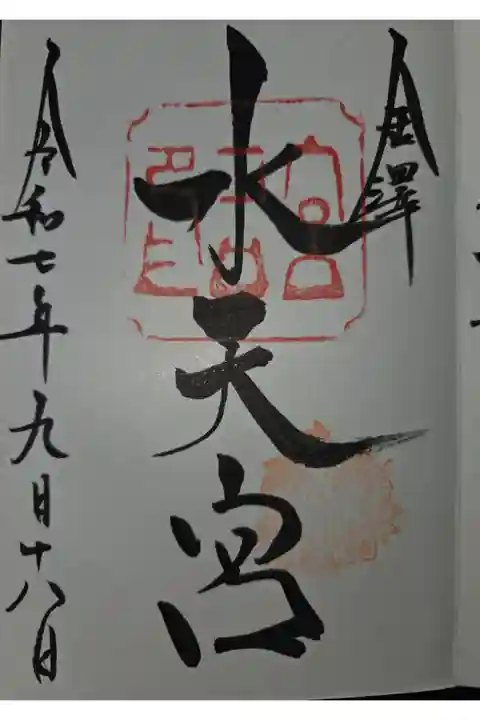 金澤
水天宮
令和七年九月十八日